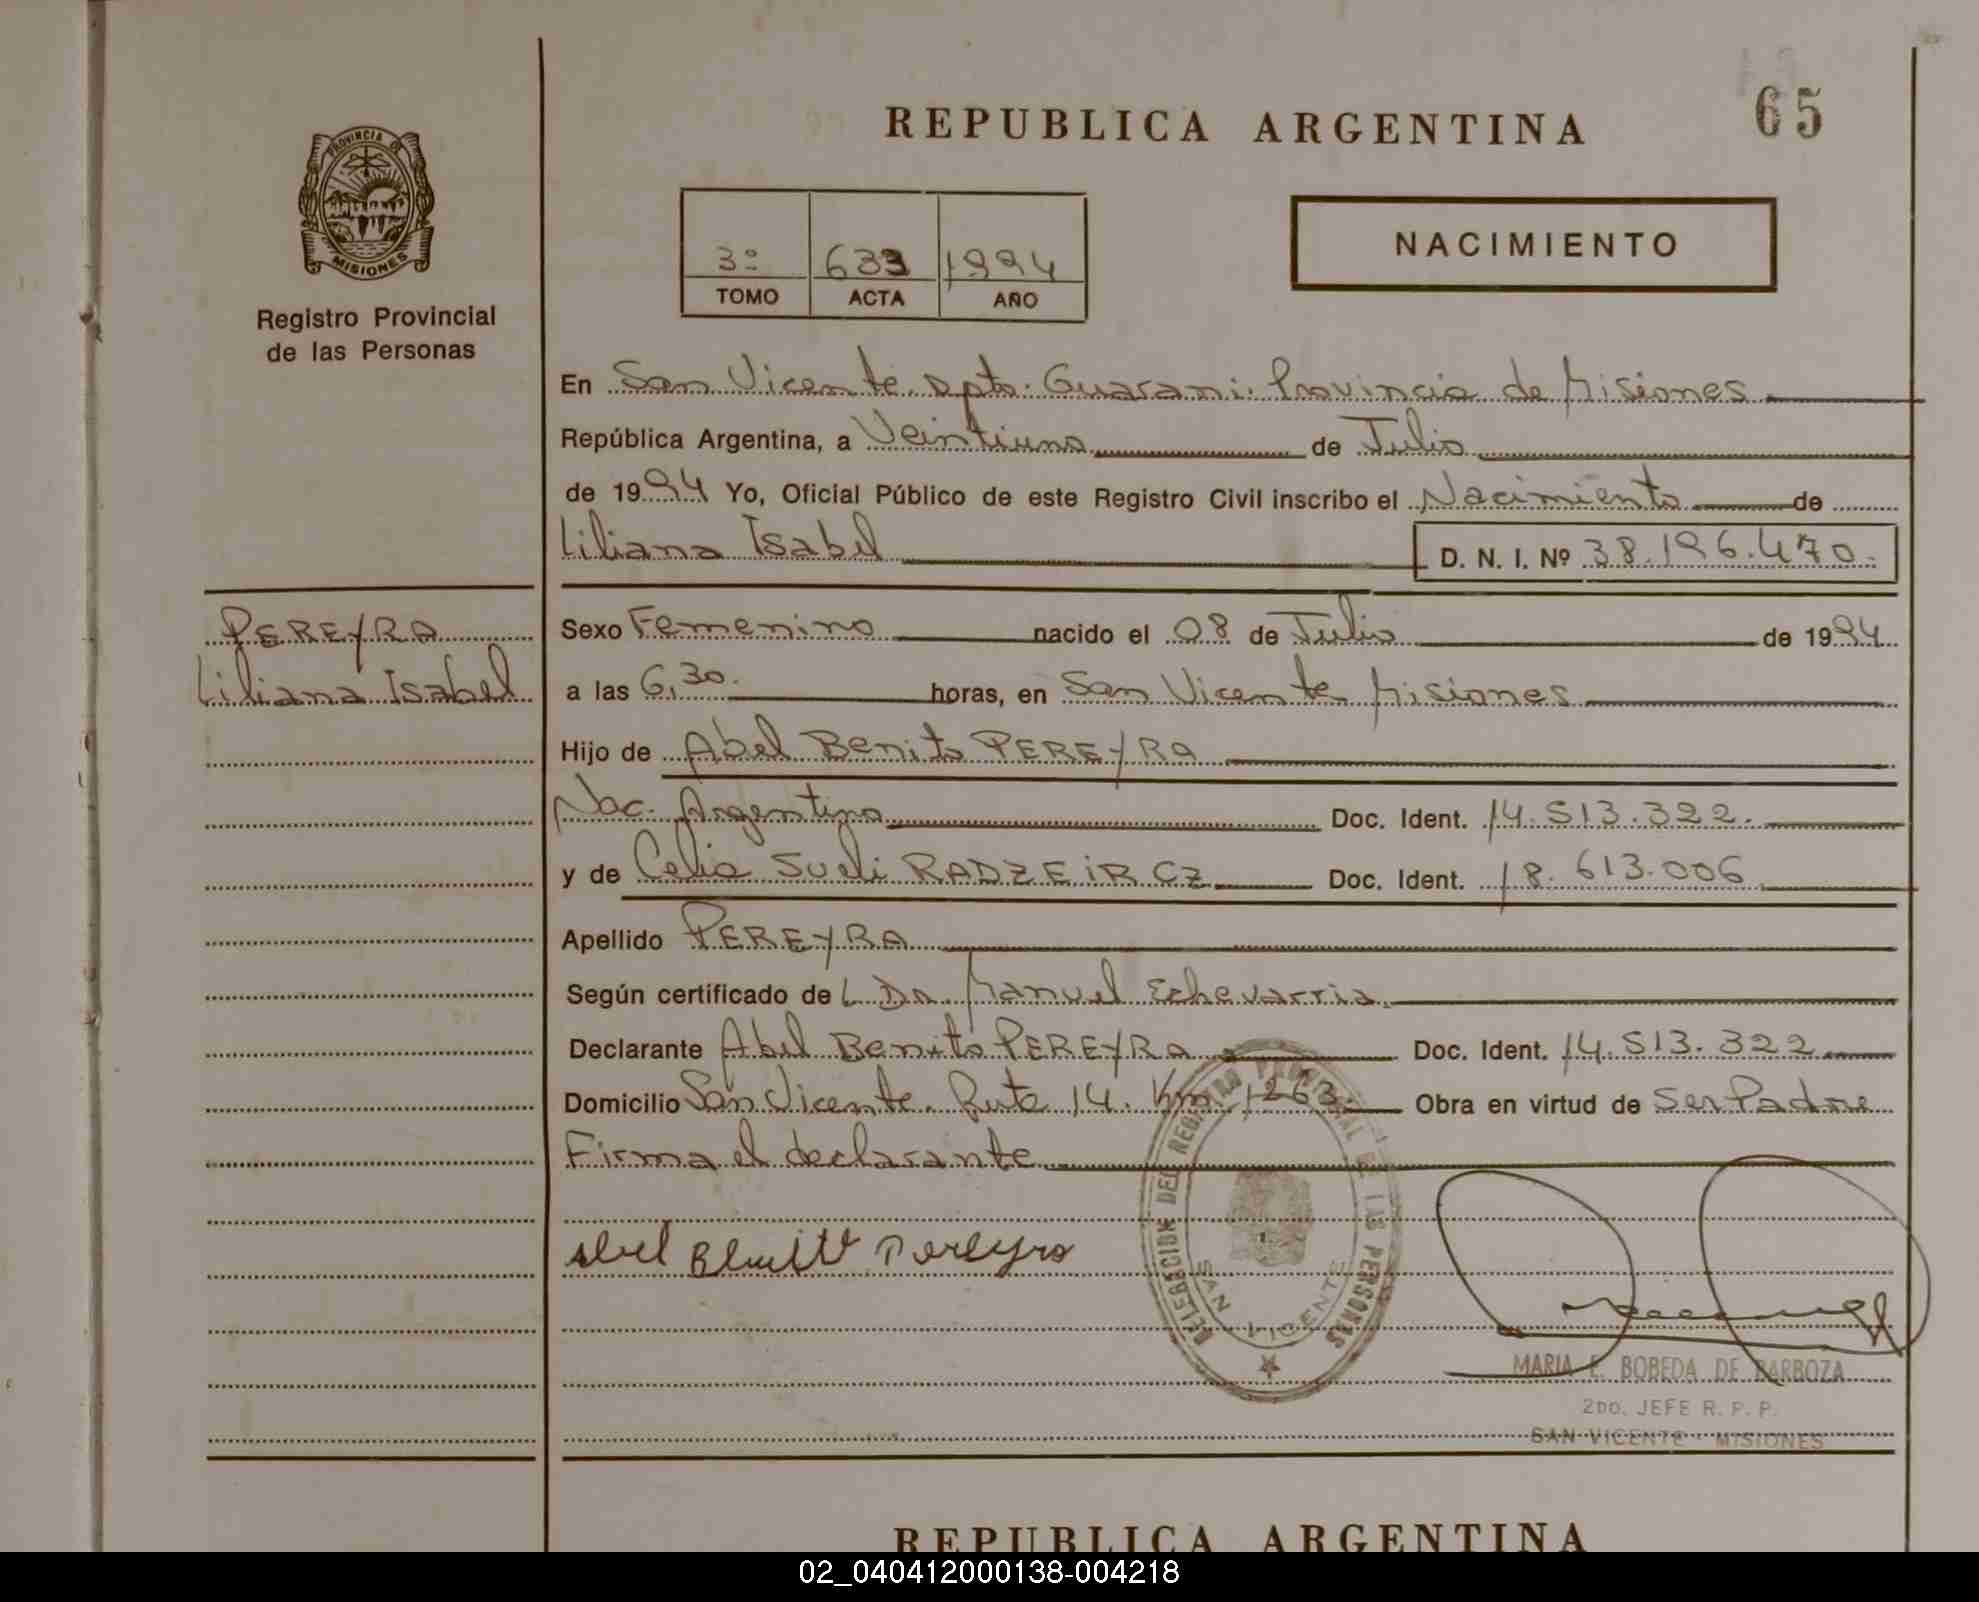 65
REPUBLICA ARGENTINA
PROVINCIA DE
MISIONES
Registro Provincial
de las Personas
3º 633 1994
TOMO ACTA AÑO
NACIMIENTO
En San Vicente Dpto. Guarani. Provincia de Misiones
República Argentina, a Veintiuno de Julio
de 1994 Yo, Oficial Público de este Registro Civil inscribo el Nacimiento de
Liliana Isabel D. N. I. Nº 38.196.470.
PEREYRA
Liliana Isabel
Sexo Femenino nacido el 08 de Julio de 1994
a las 6,30. horas, en San Vicente Misiones
Hijo de Abel Benito PEREYRA
Nac. Argentino Doc. Ident. 14.513.322.
y de Celia Sueli RADZEIRCZ Doc. Ident. 18.613.006
Apellido PEREYRA
Según certificado de L Dr. Manuel Echevarria.
Declarante Abel Benito PEREYRA Doc. Ident. 14.513.322
Domicilio San Vicente. Ruta 14. Km 1263. Obra en virtud de Ser Padre
Firma el declarante
Abel Benito Pereyra
DELEGACION DEL REGISTRO PROVINCIAL DE LAS PERSONAS
SAN VICENTE
MARIA E. BOBEDA DE BARBOZA
2DO. JEFE R. P. P.
SAN VICENTE - MISIONES
REPUBLICA ARGENTINA
02_040412000138-004218